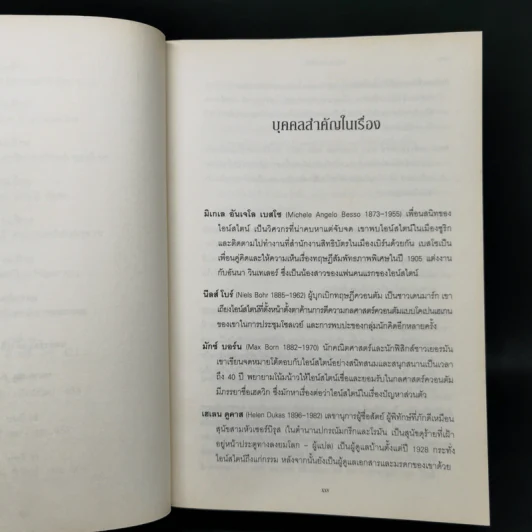 บุคคลสำคัญในเรื่อง
มิเกเล อันเจโล เบสโซ (Michele Angelo Besso 1873–1955) เพื่อนสนิทของ
ไอน์สไตน์ เป็นวิศวกรที่น่าคบหาแต่จับจด เขาพบไอน์สไตน์ในเมืองซูริก
และติดตามไปทำงานที่สำนักงานสิทธิบัตรในเมืองเบิร์นด้วยกัน เบสโซเป็น
เพื่อนคู่คิดและให้ความเห็นเรื่องทฤษฎีสัมพัทธภาพพิเศษในปี 1905 แต่งงาน
กับอันนา วินเทเลอร์ ซึ่งเป็นน้องสาวของแฟนคนแรกของไอน์สไตน์
นีลส์ โบร์ (Niels Bohr 1885–1962) ผู้บุกเบิกทฤษฎีควอนตัม เป็นชาวเดนมาร์ก เขา
เถียงไอน์สไตน์ที่ตั้งหน้าตั้งตาค้านการตีความกลศาสตร์ควอนตัมแบบโคเปนเฮเกน
ของเขาในการประชุมโซลเวย์ และการพบปะของกลุ่มนักคิดอีกหลายครั้ง
มักซ์ บอร์น (Max Born 1882–1970) นักคณิตศาสตร์และนักฟิสิกส์ชาวเยอรมัน
เขาเขียนจดหมายโต้ตอบกับไอน์สไตน์อย่างสนิทสนมและสนุกสนานเป็นเวลา
ถึง 40 ปี พยายามโน้มน้าวให้ไอน์สไตน์เชื่อและยอมรับในกลศาสตร์ควอนตัม
มีภรรยาชื่อเฮดวิก ซึ่งมักหาเรื่องต่อว่าไอน์สไตน์ในเรื่องปัญหาส่วนตัว
เฮเลน ดูคาส (Helen Dukas 1896–1982) เลขานุการผู้ซื่อสัตย์ ผู้พิทักษ์ที่ภักดีเหมือน
สุนัขสามหัวเซอร์บิรุส (ในตำนานปกรณัมกรีกและโรมัน เป็นสุนัขดุร้ายที่เฝ้า
อยู่หน้าประตูทางลงยมโลก – ผู้แปล) เป็นผู้ดูแลบ้านตั้งแต่ปี 1928 กระทั่ง
ไอน์สไตน์ถึงแก่กรรม หลังจากนั้นยังเป็นผู้ดูแลเอกสารและมรดกของเขาด้วย